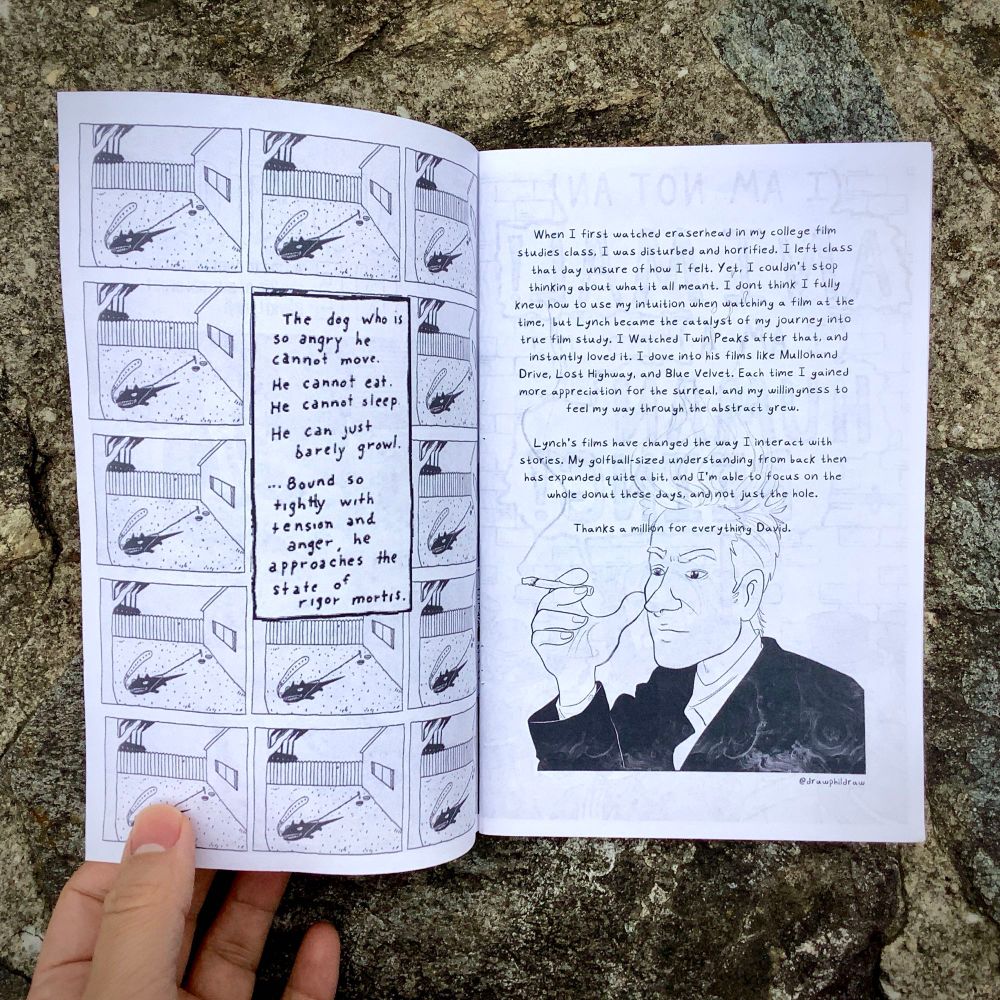 The dog who is
so angry he
cannot move.
He cannot eat.
He cannot sleep.
He can just
barely growl.
...Bound so
tightly with
tension and
anger, he
approaches the
state of
rigor mortis.
(I AM NOT AN)
When I first watched eraserhead in my college film
studies class, I was disturbed and horrified. I left class
that day unsure of how I felt. Yet, I couldn't stop
thinking about what it all meant. I dont think I fully
knew how to use my intuition when watching a film at the
time, but Lynch became the catalyst of my journey into
true film study. I Watched Twin Peaks after that, and
instantly loved it. I dove into his films like Mullohand
Drive, Lost Highway, and Blue Velvet. Each time I gained
more appreciation for the surreal, and my willingness to
feel my way through the abstract grew.
Lynch's films have changed the way I interact with
stories. My golfball-sized understanding from back then
has expanded quite a bit, and I'm able to focus on the
whole donut these days, and not just the hole.
Thanks a million for everything David.
@drawphildraw